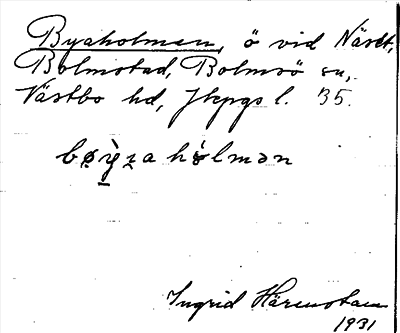 Byaholmen, ö vid Näset,
Bolmstad, Bolmsö sn,
Västbo hd, Jkpgs l. 35.
bøỳ̠ʒa hólmən
Ingrid Härenstam
1931